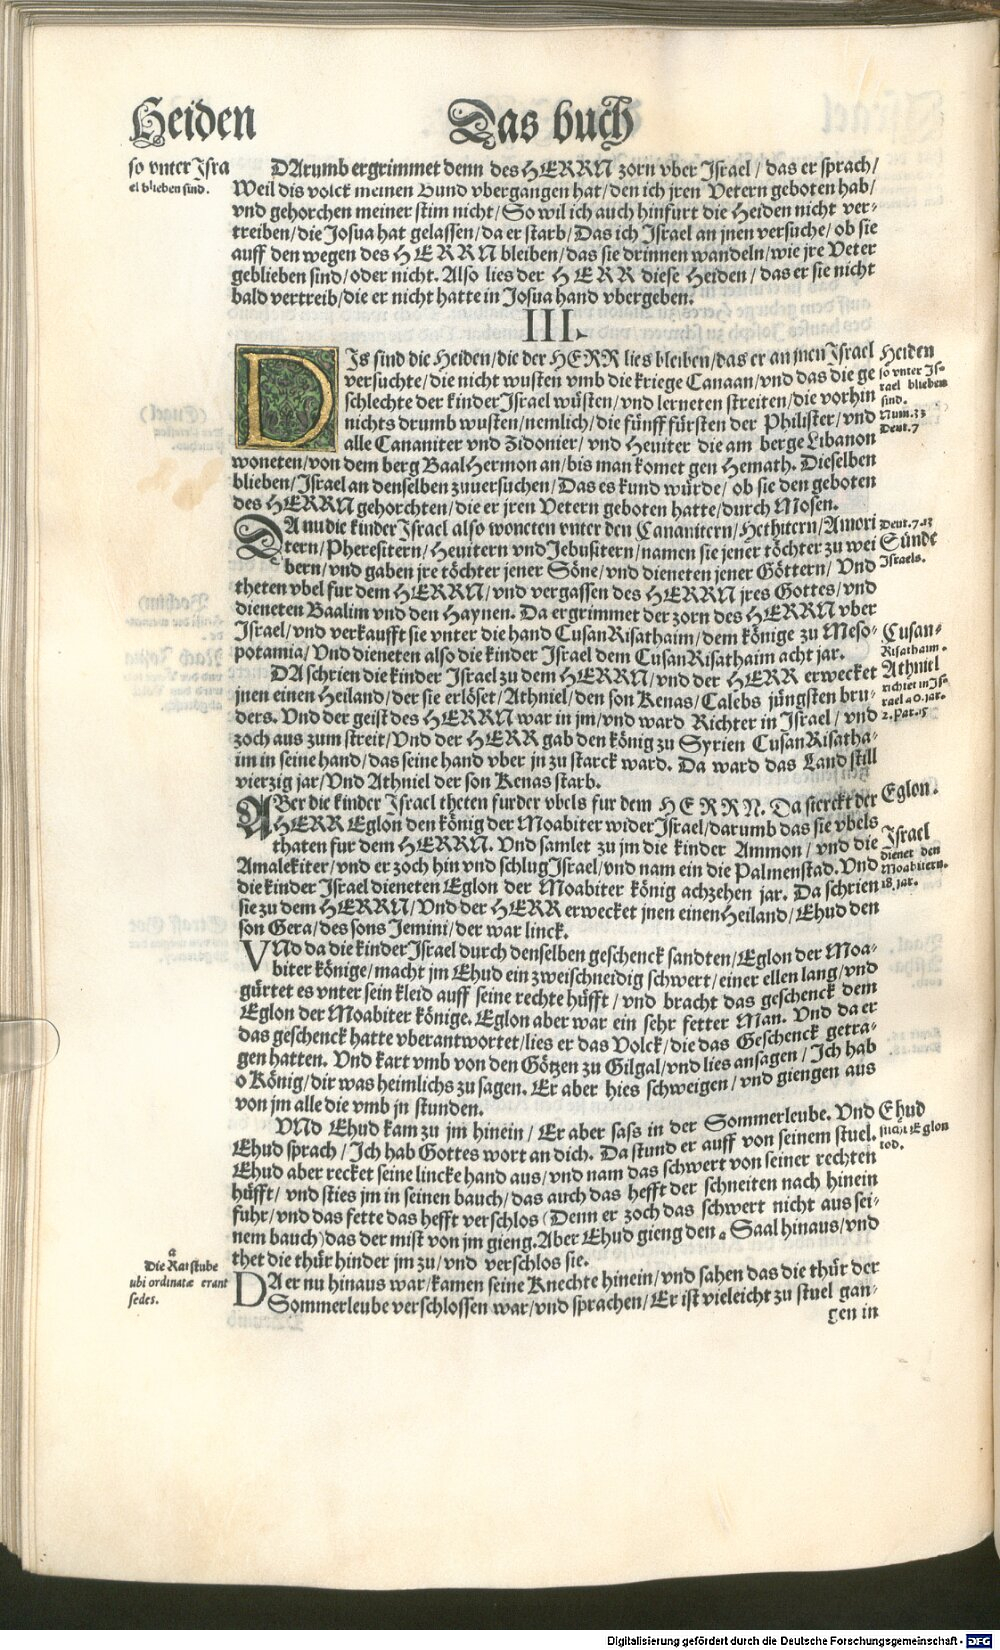 Heiden
Das buch
so vnter Isra
el blieben sind.
DArumb ergrimmet denn des HERRN zorn vber Israel / das er sprach /
Weil dis volck meinen Bund vbergangen hat / den ich jren Vetern geboten hab /
vnd gehorchen meiner stim nicht / So wil ich auch hinfurt die Heiden nicht ver-
treiben / die Josua hat gelassen / da er starb / Das ich Israel an jnen versuche / ob sie
auff den wegen des HERRN bleiben / das sie drinnen wandeln / wie jre Veter
geblieben sind / oder nicht. Also lies der HERR diese Heiden / das er sie nicht
bald vertreib / die er nicht hatte in Josua hand vbergeben.
III.
DIs sind die Heiden / die der HERR lies bleiben / das er an jnen Israel
versuchte / die nicht wusten vmb die kriege Canaan / vnd das die ge
schlechte der kinder Israel wüsten / vnd lerneten streiten / die vorhin
nichts drumb wusten / nemlich / die fünff fürsten der Philister / vnd
alle Cananiter vnd Zidonier / vnd Heuiter die am berge Libanon
woneten / von dem berg BaalHermon an / bis man komet gen Hemath. Dieselben
blieben / Israel an denselben zuuersuchen / Das es kund würde / ob sie den geboten
des HERRN gehorchten / die er jren Vetern geboten hatte / durch Mosen.
Heiden
so vnter Is-
rael blieben
sind.
Num. 33
Deut. 7
DA nu die kinder Israel also woneten vnter den Cananitern / Hethitern / Amori
tern / Pheresitern / Heuitern vnd Jebusitern / namen sie jener töchter zu wei
bern / vnd gaben jre töchter jener Söne / vnd dieneten jener Göttern / Vnd
theten vbel fur dem HERRN / vnd vergassen des HERRN jres Gottes / vnd
dieneten Baalim vnd den Haynen. Da ergrimmet der zorn des HERRN vber
Israel / vnd verkaufft sie vnter die hand CusanRisathaim / dem könige zu Meso-
potamia / Vnd dieneten also die kinder Israel dem CusanRisathaim acht jar.
Deut. 7. 13
Sünde
Israels.
Cusan-
Risathaim.
DA schrien die kinder Israel zu dem HERRN / vnd der HERR erwecket
jnen einen Heiland / der sie erlöset / Athniel / den son Kenas / Calebs jüngsten bru-
ders. Vnd der geist des HERRN war in jm / vnd ward Richter in Israel / vnd
zoch aus zum streit / Vnd der HERR gab den könig zu Syrien CusanRisatha-
im in seine hand / das seine hand vber jn zu starck ward. Da ward das Land still
vierzig jar / Vnd Athniel der son Kenas starb.
Athniel
richtet in Is-
rael 40. jar.
2. Par. 5
ABer die kinder Israel theten furder vbels fur dem HERRN. Da sterckt der
HERR Eglon den könig der Moabiter wider Israel / darumb das sie vbels
thaten fur dem HERRN. Vnd samlet zu jm die kinder Ammon / vnd die
Amalekiter / vnd er zoch hin vnd schlug Israel / vnd nam ein die Palmenstad. Vnd
die kinder Israel dieneten Eglon der Moabiter könig achzehen jar. Da schrien
sie zu dem HERRN / Vnd der HERR erwecket jnen einen Heiland / Ehud den
son Gera / des sons Jemini / der war linck.
Eglon.
Israel
dienet den
Moabitern.
18. jar.
VNd da die kinder Israel durch denselben geschenck sandten / Eglon der Moa-
biter könige / macht jm Ehud ein zweischneidig schwert / einer ellen lang / vnd
gürtet es vnter sein kleid auff seine rechte hüfft / vnd bracht das geschenck dem
Eglon der Moabiter könige. Eglon aber war ein sehr fetter Man. Vnd da er
das geschenck hatte vberantwortet / lies er das Volck / die das Geschenck getra-
gen hatten. Vnd kart vmb von den Götzen zu Gilgal / vnd lies ansagen / Ich hab
o König / dir was heimlichs zu sagen. Er aber hies schweigen / vnd giengen aus
von jm alle die vmb jn stunden.
VNd Ehud kam zu jm hinein / Er aber sass in der Sommerleube. Vnd
Ehud sprach / Ich hab Gottes wort an dich. Da stund er auff von seinem stuel.
Ehud aber recket seine lincke hand aus / vnd nam das schwert von seiner rechten
hüfft / vnd sties jm in seinen bauch / das auch das hefft der schneiten nach hinein
fuhr / vnd das fette das hefft verschlos (Denn er zoch das schwert nicht aus sei-
nem bauch) das der mist von jm gieng. Aber Ehud gieng den a Saal hinaus / vnd
thet die thür hinder jm zu / vnd verschlos sie.
Ehud
Eglon
tod.
a
Die Ratstube
ubi ordinatæ erant
sedes.
DA er nu hinaus war / kamen seine Knechte hinein / vnd sahen das die thür der
Sommerleube verschlossen war / vnd sprachen / Er ist vieleicht zu stuel gan-
gen in
Digitalisierung gefördert durch die Deutsche Forschungsgemeinschaft - DFG